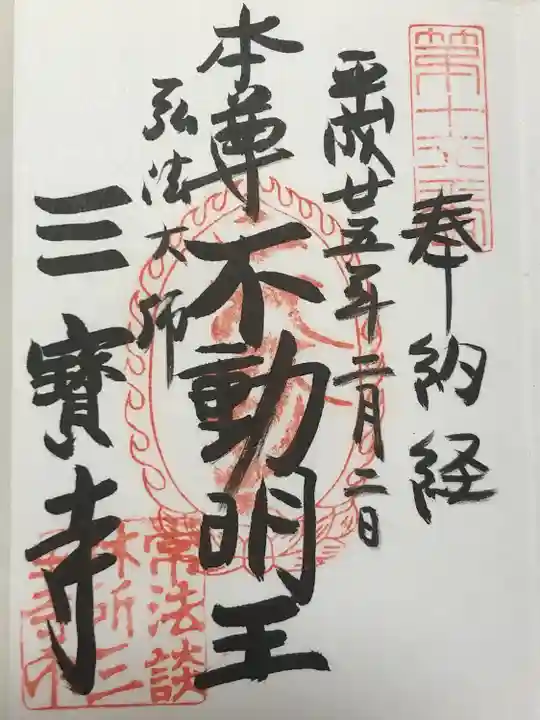 第十六番
奉納経
平成廿五年二月二日
本尊不動明王
弘法大師
三寶寺
常法談
林所三